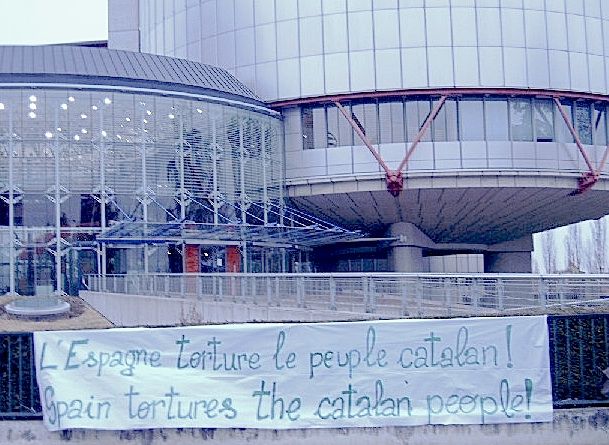 L'Espagne torture le peuple catalan!
Spain tortures the catalan people!